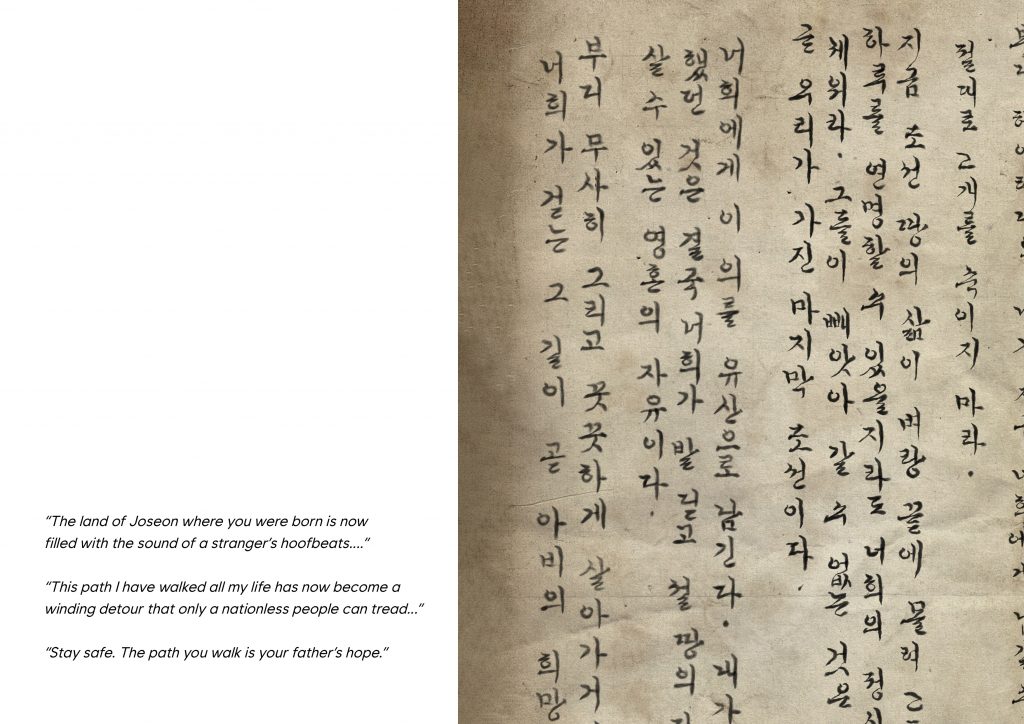 “The land of Joseon where you were born is now
filled with the sound of a stranger’s hoofbeats....”
“This path I have walked all my life has now become a
winding detour that only a nationless people can tread...”
“Stay safe. The path you walk is your father’s hope.”
절대로 고개를 숙이지 마라.
지금 조선 땅의 삶이 벼랑 끝에 몰려 그
하루를 연명할 수 있을지라도 너희의 정신
채워라. 그들이 빼앗아 갈 수 없는 것은
글 우리가 가진 마지막 조선이다.
너희에게 이 의를 유산으로 남긴다. 내가
했던 것은 결국 너희가 발 딛고 설 땅의
살 수 있는 영혼의 자유이다.
부디 무사히 그리고 꿋꿋하게 살아가거
너희가 걷는 그 길이 곧 아비의 희망